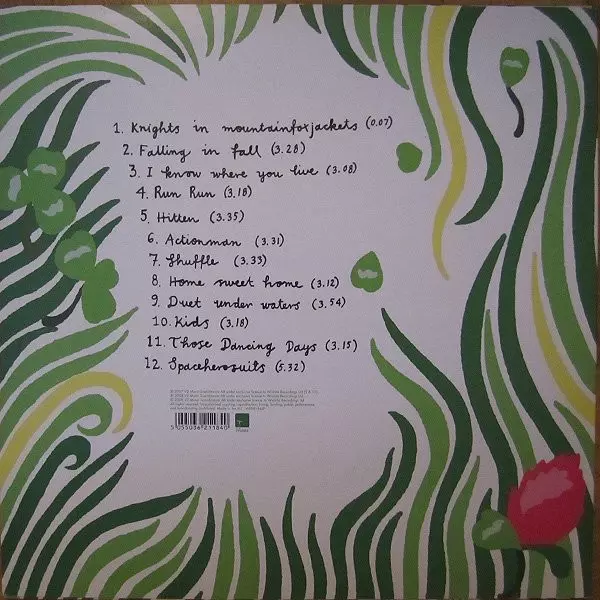 1. Knights in mountainfoxjackets (0.07)
2. Falling in fall (3.28)
3. I know where you live (3.08)
4. Run Run (3.18)
5. Hitten (3.35)
6. Actionman (3.31)
7. Shuffle (3.33)
8. Home sweet home (3.12)
9. Duet under waters (3.54)
10. Kids (3.18)
11. Those Dancing Days (3.15)
12. Spaceherosuits (5.32)
5 055036 211840